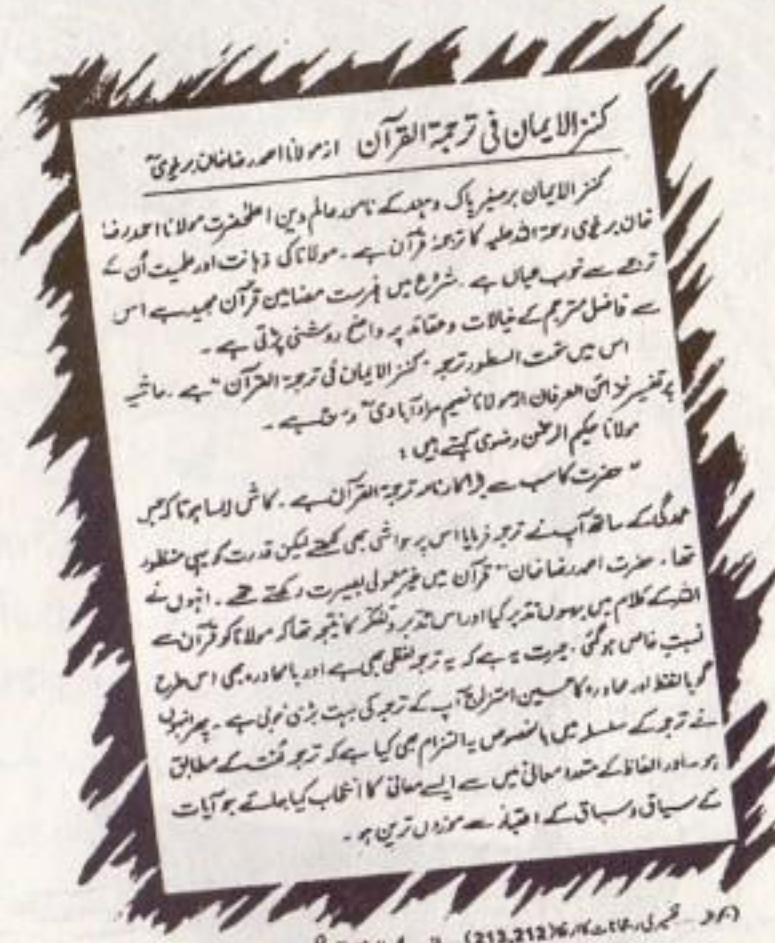 کنز الایمان فی ترجمۃ القرآن از مولانا احمد رضا خان بریلویؒ
کنز الایمان برصغیر پاک و ہند کے نامور عالم دین اعلیٰحضرت مولانا احمد رضا
خان بریلوی رحمۃ اللہ علیہ کا ترجمۂ قرآن ہے ۔ مولانا کی ذہانت اور علمیت اُن کے
ترجمے سے خوب عیاں ہے ۔ شروع میں فہرست مضامین قرآن مجید ہے اس
سے فاضل مترجم کے خیالات و عقائد پر واضح روشنی پڑتی ہے ۔
اس میں تحت السطور ترجمہ "کنز الایمان فی ترجمۃ القرآن" ہے ۔ حاشیہ
پر تفسیر خزائن العرفان از مولانا نعیم مراد آبادیؒ درج ہے ۔
مولانا حکیم الرحمٰن رضوی کہتے ہیں :
" حضرت کا سب سے بڑا کارنامہ ترجمۃ القرآن ہے ۔ کاش ایسا ہوتا کہ جس
عمدگی کے ساتھ آپ نے ترجمہ فرمایا اس پر حواشی بھی لکھتے لیکن قدرت کو یہی منظور
تھا ۔ حضرت احمد رضا خانؒ قرآن میں غیر معمولی بصیرت رکھتے تھے ۔ انہوں نے
اللہ کے کلام میں برسوں تدبر کیا اور اس تدبر و تفکر کا نتیجہ تھا کہ مولانا کو قرآن سے
نسبتِ خاص ہوگئی ۔ حیرت یہ ہے کہ یہ ترجمہ لفظی بھی ہے اور بامحاورہ بھی اس طرح
گویا لفظ اور محاورہ کا حسین امتزاج آپ کے ترجمہ کی بہت بڑی خوبی ہے ۔ پھر انہوں
نے ترجمہ کے سلسلہ میں بالخصوص یہ التزام بھی کیا ہے کہ ترجمہ لُغت کے مطابق
ہو ۔ اور الفاظ کے متعدد معانی میں سے ایسے معانی کا انتخاب کیا جائے جو آیات
کے سیاق و سباق کے اعتبار سے موزوں ترین ہو ۔
(213,212)